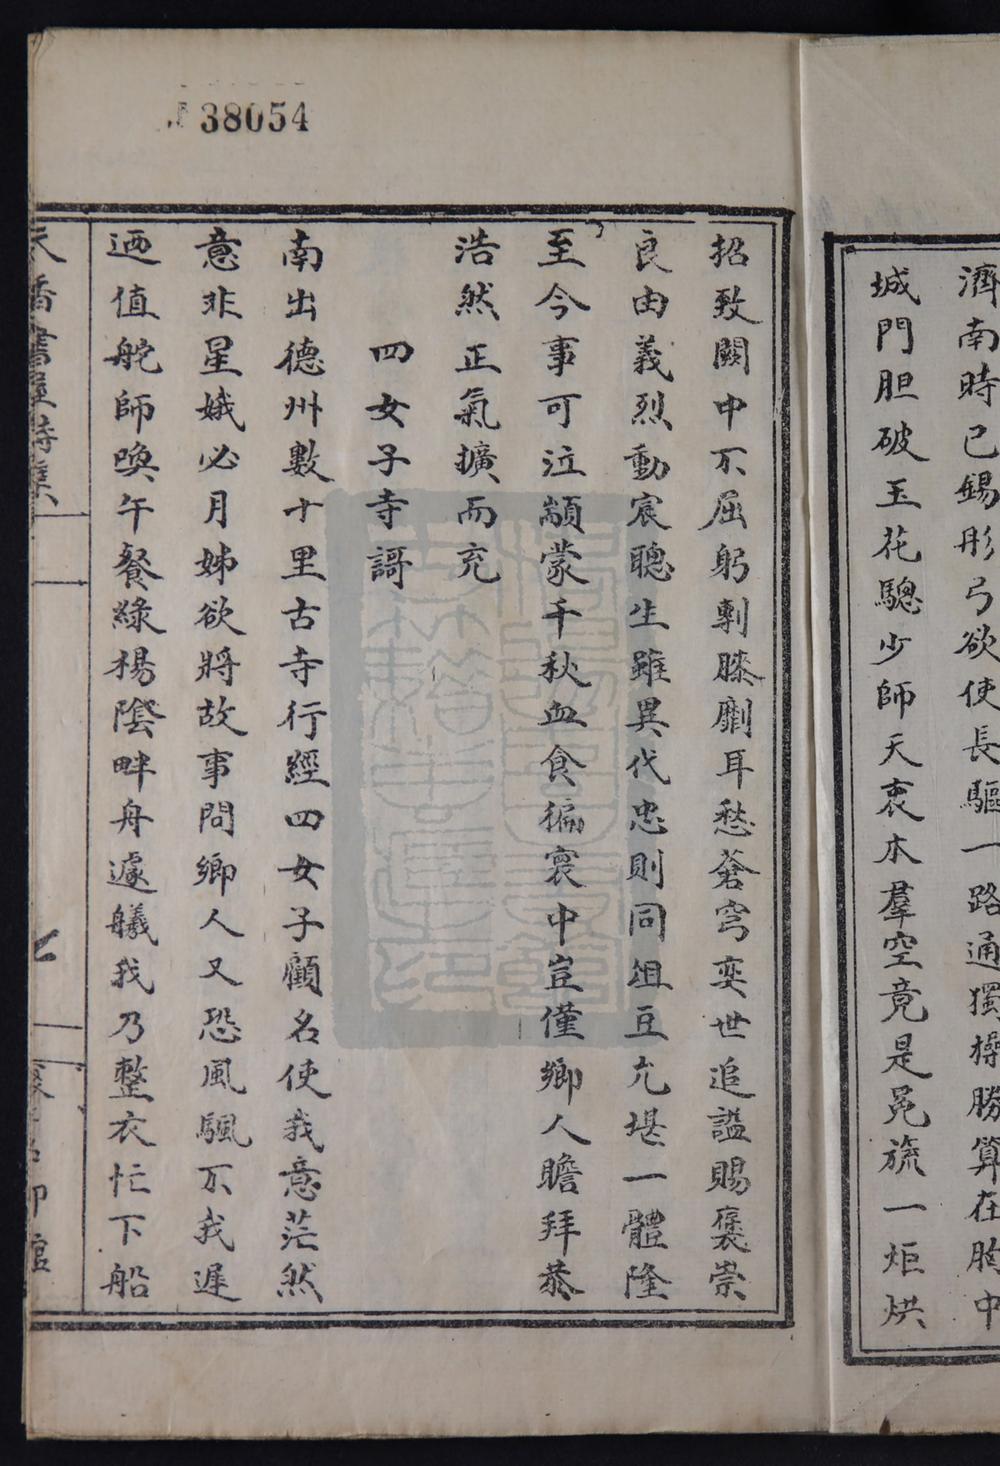 38054
濟南時已錫彤弓欲使長驅一路通獨操勝算在胸中
城門胆破玉花驄少師天衷本羣空竟是冕旒一炬烘
招致闕中不屈躬剸膝劘耳愁蒼穹奕世追諡賜褒崇
良由義烈動宸聰生雖異代忠則同俎豆允堪一體隆
至今事可泣顓蒙千秋血食徧寰中豈僅鄉人瞻拜恭
浩然正氣擴而充
四女子寺謌
南出德州數十里古寺行經四女子顧名使我意茫然
意非星娥必月姊欲將故事問鄉人又恐風颿不我遲
迺值舵師喚午餐綠楊陰畔舟遽艤我乃整衣忙下船
書屋詩集
七
印館